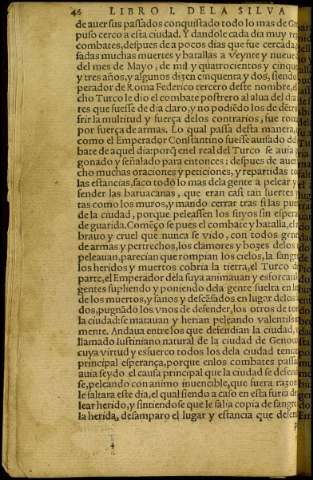 46 LIBRO I. DE LA SILVA
de auer sus passados conquistado todo lo mas de
puso cerco a esta ciudad. Y dandole cada dia muy
combates, despues de a pocos dias que fue cercada
sadas muchas muertes y batallas a veynte y nueue
del mes de Mayo, de mil y quatrocientos y cinquẽ
y tres años, y algunos dizen cinquenta y dos, siendo
perador de Roma Federico tercero deste nombre, el
cho Turco le dio el combate postrero al alua del dia
tes que fuesse de dia claro, y no podiẽdo los de dẽtro
frir la multitud y fuerça de los contrarios, fue
por fuerça de armas. Lo qual passa desta manera,
como el Emperador Constantino fuesse auisado de
bate de aquel dia porq̃ en el real del Turco se auia
gonado y señalado para entonces: despues de auer
cho muchas oraciones y peticiones, y repartidas
las estancias, saco todo lo mas de la gente a pelear y
fender las baruacanas, que eran casi tan fuertes
tas como los muros, y mando cerrar tras si las
de la ciudad, porque peleassen los suyos sin
de guarida. Começo se pues el combate y batalla,
brauo y cruel que nunca se vido, con todos
de armas y pertrechos, los clamores y bozes delos
peleauan, parecian que rompian los cielos, la
los heridos y muertos cobria la tierra, el Turco
parte, el Emperador dela suya animauan y
gentes supliendo y poniendo dela gente suelta en
de los muertos, y sanos y descãsados en lugar delos
dos, pugnãdo los vnos de defender, los otros de
la ciudad: se matauan y herian peleando
mente. Andaua entre los que defendian la ciudad,
llamado Iustiniano natural de la ciudad de Genoua
cuya virtud y esfuerço todos los dela ciudad
principal esperança, porque enlos combates
auia seydo el causa principal que la ciudad se
se, peleando con animo inuencible, que fuera
le saltara este dia, el qual siendo a caso en esta
lear herido, y sintiendose que le salia copia de sangre
la herida, desamparo el lugar y estancia que